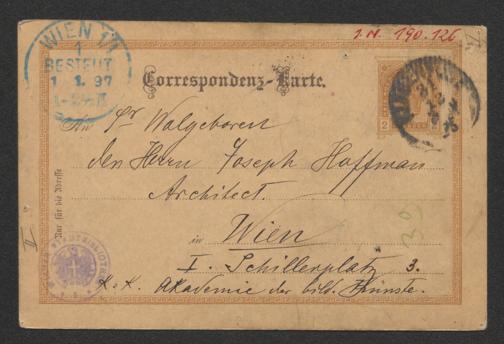 J.N. 190.126
WIEN 1/1
1
BESTELLT
1 1. 97
Correspondenz-Karte.
An Sr Wolgeboren
den Herrn Joseph Hoffman
Architect.
Nur für die Adresse
in Wien
I. Schillerplatz 3.
K.K. Akademie der bild. Künste.
39
II
2